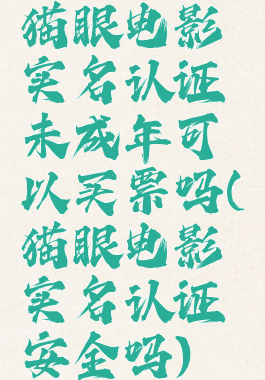 猫眼电影
实名认证
未成年可
以买票吗(
猫眼电影
实名认证
安全吗)